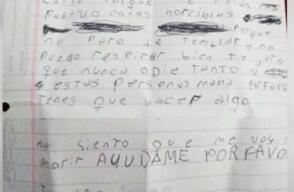 cosas horribles porque
no paro de temblar y no
puedo respirar bien te juro
que nunca odie tanto a
estas personas mama porfavor
tenes que hacer algo
siento que me voy a
morir AYUDAME PORFAVO